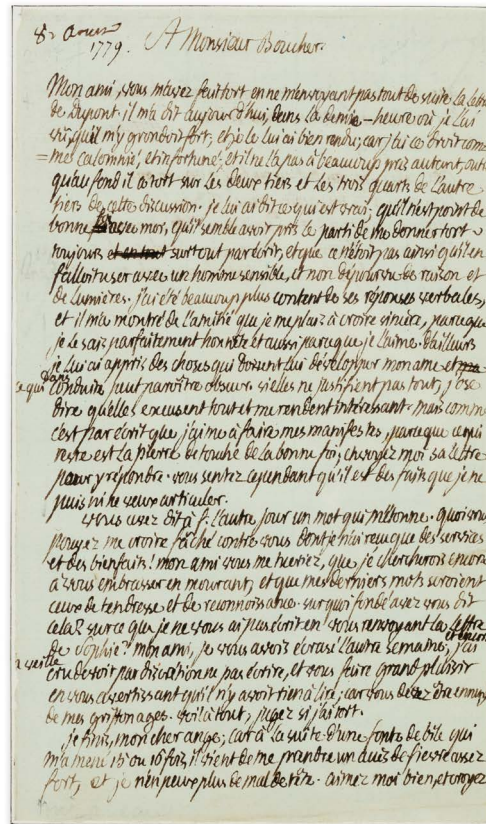 8 Aoust
1779. A Monsieur Boucher.
Mon ami, vous m'avez fait tort en ne m'envoyant pas tout de suite la lettre
de Dupont. il m'a dit aujourd'hui, dans la demie-heure où je l'ai
vu, qu'il m'y grondoit fort, et je le lui ai bien rendu; car j'ai ce droit com
= me calomnié, et infortuné; et il ne l'a pas à beaucoup près autant, outre
qu'au fond il a tort sur les deux tiers et les trois quarts de l'autre
tiers de cette discussion. je lui ai dit ce qui est vrai; qu'il n'est point de
bonne avec moi, qu'il semble avoir pris le parti de me donner tort
toujours surtout par écrit, et que ce n'étoit pas ainsi qu'il en
falloit user avec un homme sensible, et non dépourvu de raison et
de lumières. j'ai été beaucoup plus content de ses réponses verbales,
et il m'a montré de l'amitié que je me plais à croire sincère, parceque
je le sais parfaitement honnête et aussi parceque je l'aime. d'ailleurs
je lui ai appris des choses qui doivent lui développer mon ame et ma
ce qui dans
conduite peut paroître obscur. si elles ne justifient pas tout, j'ose
dire qu'elles excusent tout et me rendent intéressant. mais comme
c'est par écrit que j'aime à faire mes manifestes, parceque ce qui
reste est la pierre de touche de la bonne foi, envoyez moi sa lettre
pour y répondre. vous sentez cependant qu'il est des faits que je ne
puis ni ne veux articuler.
vous avez dit à f. l'autre jour un mot qui m'étonne. quoi vous
pouvez me croire fâché contre vous dont je n'ai reçu que des services
et des bienfaits! mon ami vous me tueriez, que je chercherois encore
à vous embrasser en mourant, et que mes derniers mots seroient
ceux de tendresse et de reconnoissance. sur quoi fondé avez vous dit
cela? sur ce que je ne vous ai pas écrit en vous renvoyant la lettre
de Sophie? mon ami, je vous avois écrasé l'autre semaine, et encore
la veille
j'ai
cru devoir par discrétion ne pas écrire, et vous faire grand plaisir
en vous avertissant qu'il n'y avoit rien à lire; car vous devez être ennuyé
de mes griffonages. voilà tout, jugez si j'ai tort.
je finis, mon cher ange; car à la suite d'une fonte de bile qui
m'a mené 15 ou 16 fois il vient de me prendre un accès de fievre assez
fort, et je n'en peux plus de mal de tête. aimez moi bien, et croyez